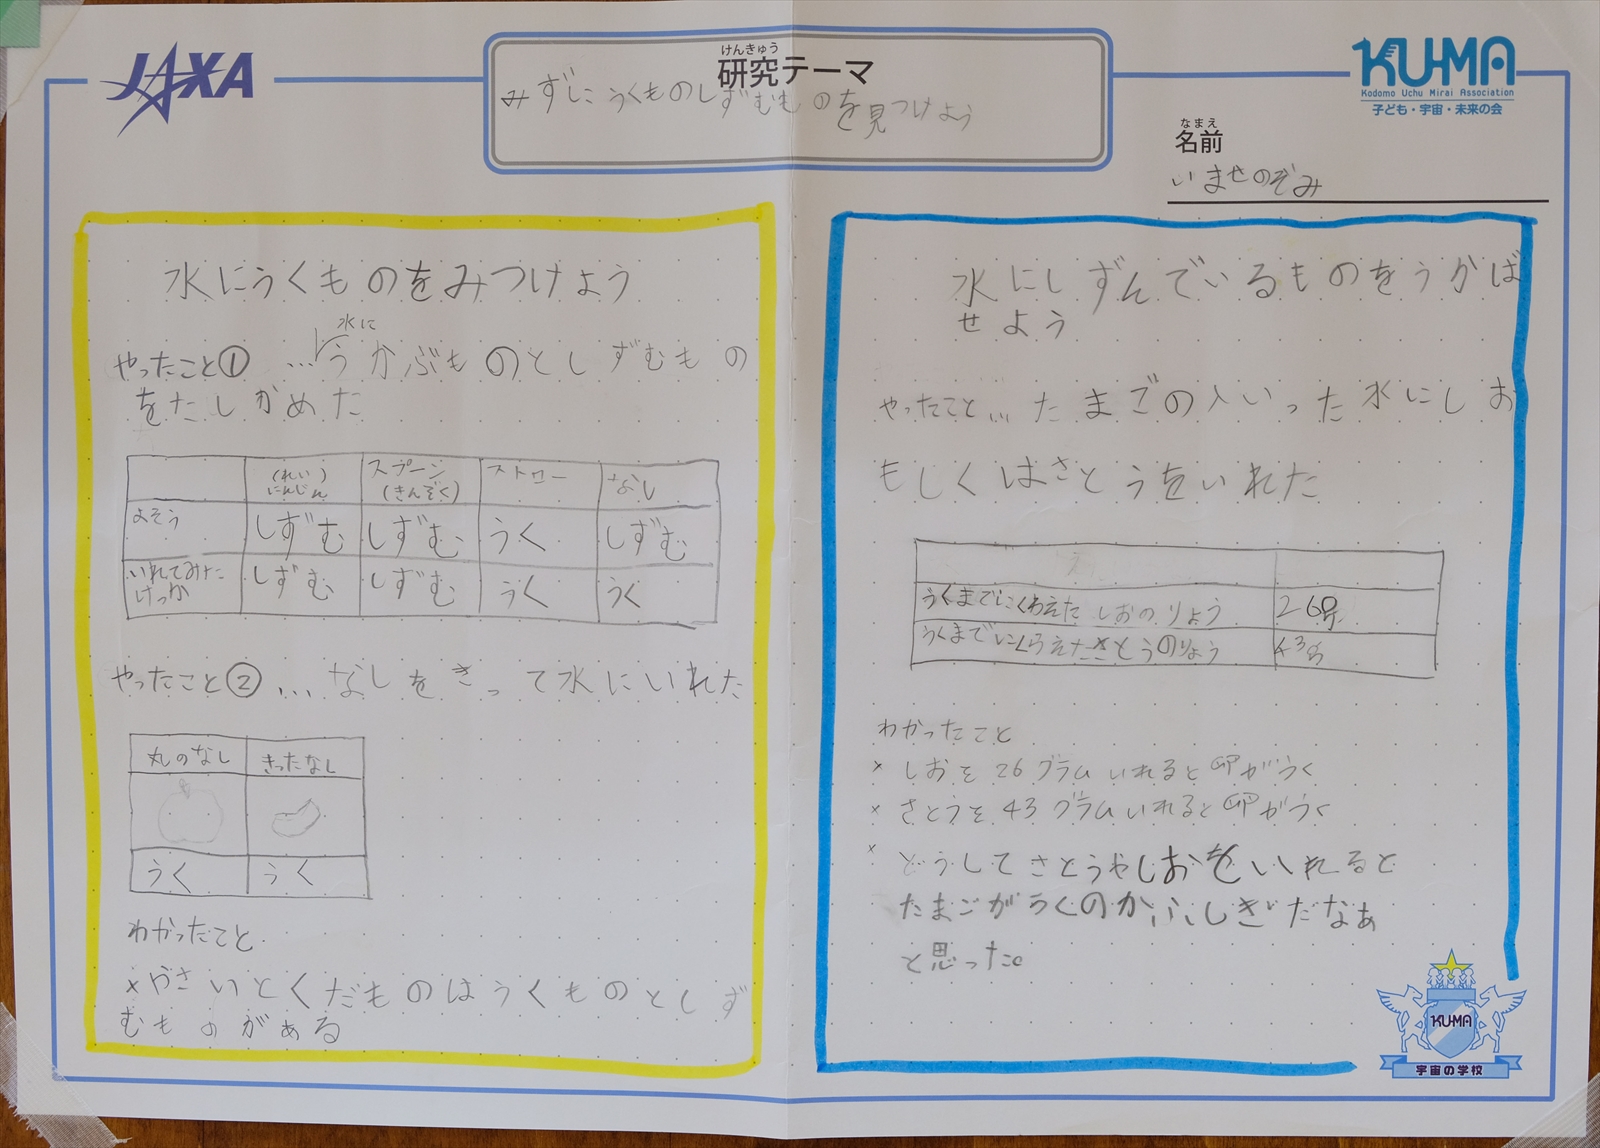 JAXA
けんきゅう
研究テーマ
みずにうくものしずむものを見つけよう
KU-MA
Kodomo Uchu Mirai Association
子ども・宇宙・未来の会
なまえ
名前
いませのぞみ
水にうくものをみつけよう
水に
やったこと① …うかぶものとしずむもの
をたしかめた
(れい)にんじん スプーン(きんぞく) ストロー なし
よそう しずむ しずむ うく しずむ
いれてみたけっか しずむ しずむ うく うく
やったこと② …なしをきって水にいれた
丸のなし きったなし
うく うく
わかったこと
×やさいとくだものはうくものとしず
むものがある
水にしずんでいるものをうかば
せよう
やったこと…たまごの入いった水にしお
もしくはさとうをいれた
うくまでにくわえたしおのりょう 26g
うくまでにくらえたさとうのりょう 43g
わかったこと
× しおを26グラムいれると卵がうく
× さとうを43グラムいれると卵がうく
× どうしてさとうやしおをいれると
たまごがうくのかふしぎだなぁ
と思った。
KU-MA
宇宙の学校